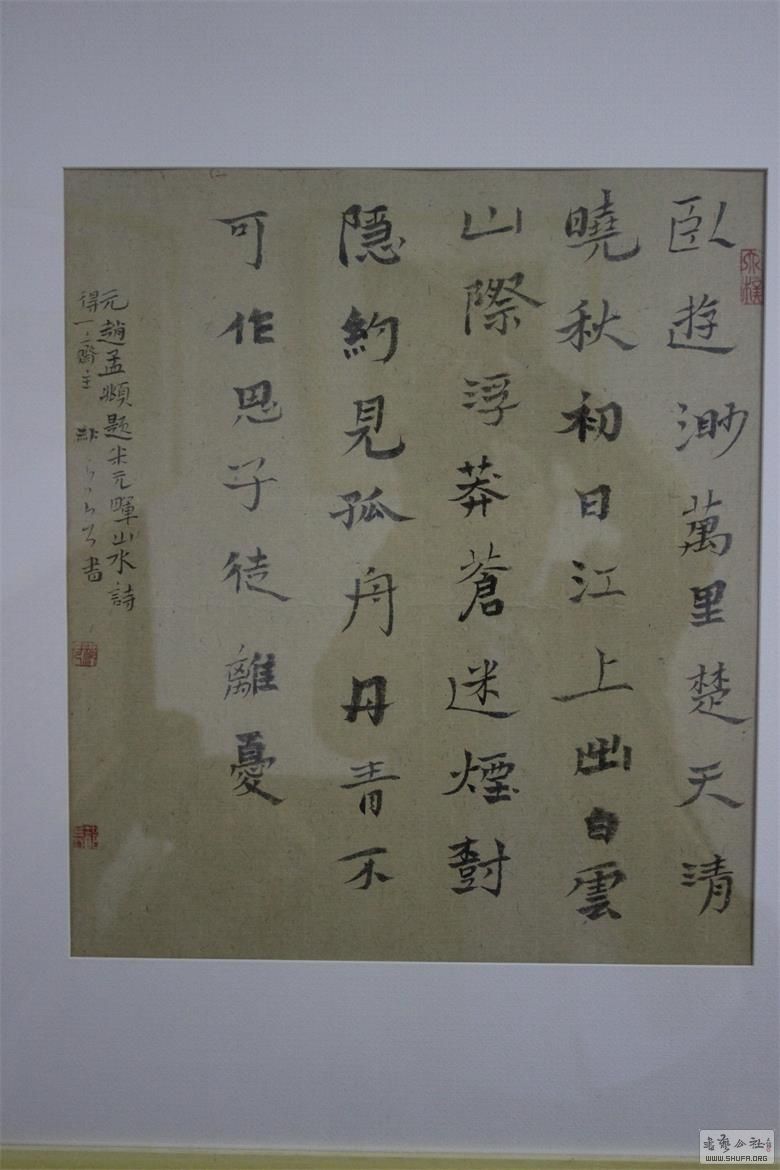 臥遊渺萬里楚天清
曉秋初日江上出白雲
山際浮莽蒼迷煙樹
隱約見孤舟丹青不
可作思子徒離憂
元趙孟頫題米元暉山水詩
得一齋主
書
WWW.SHUFA.ORG